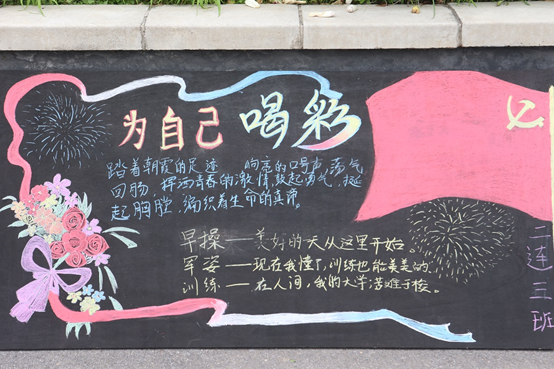 为自己喝彩
踏着朝霞的足迹 响亮的口号声荡气
回肠 挥洒青春的激情,鼓起勇气,挺
起胸膛,编织着生命的真谛。
早操——美好的一天从这里开始。
军姿——现在我懂了,训练也能美美的
训练——在人间,我的大学苦难学校。
二连三班